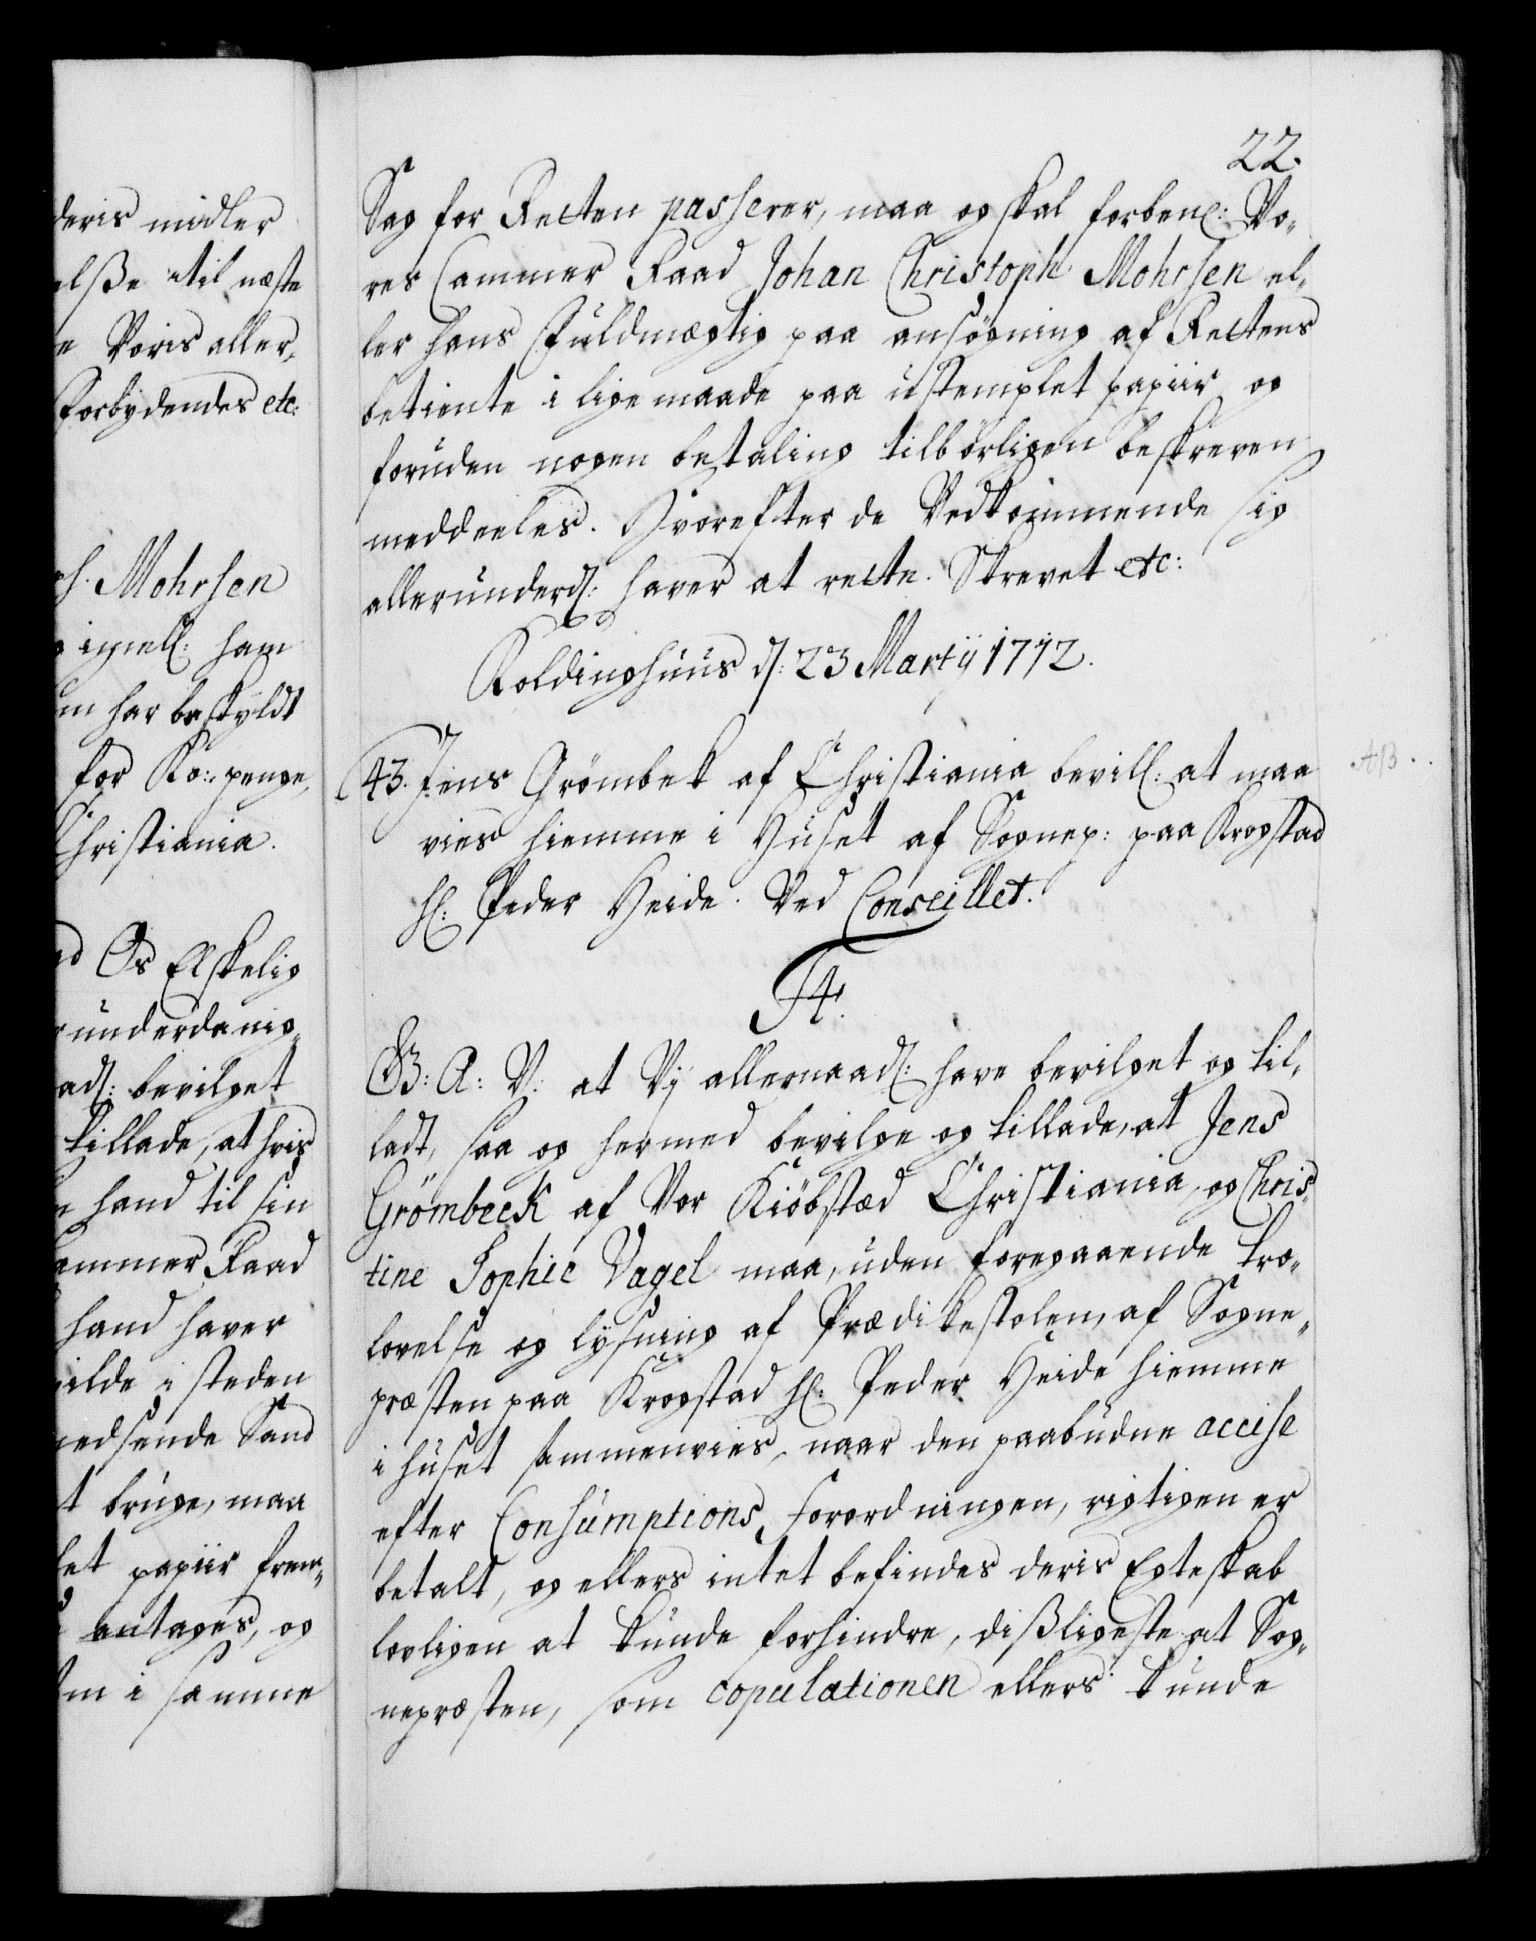 deris midler
elße til næste
e Voris aller,
Forbydendes etc:
h. Mohrsen
ignell: ham
m har beskyldt
for Ko: penge,
Christiania.
d Os Elskelig
runderdanig„
ad: bevilget
tillade, at hvis
e hand til sin
ammer Raad
hand haver
ilde i steden
nedsende Sand
t bruge, maa
let papiir frem„
antages, og
m i samme
22.
Sag for Retten passerer, maa og skal forben: Vo„
res Cammer Raad Johan Christoph Mohrsen el„
ler hans Fuldmægtig paa ansögning af Rettens
betiente i lige maade paa ustemplet papiir og
foruden nogen betaling tilbörligen beskreven
meddeeles. Hvorefter de Vedkommende sig
allerunderd: haver at rette. Skrevet etc:
Koldinghuus d: 23 Martij 1712.
43. Jens Grömbek af Christiania bevill: at maa
vies hiemme i Huset af Sognep: paa Krogstad
H: Peder Heide. Ved Conseillet.
F4.
G: A: V: at Vj allernaad: have bevilget og til„
ladt, saa og hermed bevilge og tillade, at Jens
Grömbeck af Vor Kiöbstæd Christiania, og Chris„
tine Sophie Vagel maa, uden foregaaende tro„
lovelse og lysning af Prædikestolen, af Sogne„
præsten paa Krogstad H: Peder Heide hiemme
i huset sammenvies, naar den paabudne accise
efter Consumptions Forordningen, rigtigen er
betalt, og ellers intet befindes deris Egteskab
lovligen at kunde forhindre, dißligeste at Sog„
nepræsten, som copulationen ellers kunde